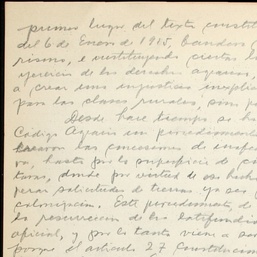 primer lugar del texto constit
del 6 de Enero de 1915, bandos
rismo, e instituyendo ciertas
ejercicio de los derechos agrarios,
a crear una injusticia
por las clases rurales, sin
Desde hace tiempo se ha
Código Agrario un procedimiento
las concesiones de inafec
ra, hasta por la superficie de
turas, donde por virtud de ese hecho
perar solicitudes de tierras ya sea
colonización. Este procedimiento,
la resurrección de los latifundio
oficial, y por lo tanto viene a
porque el artículo 27 Constitucion